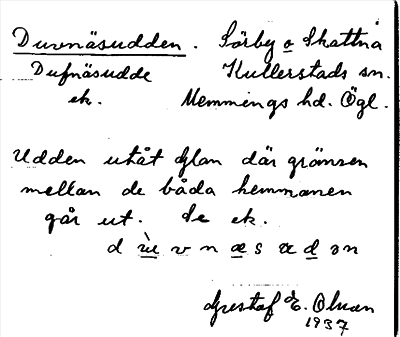 Duvnäsudden. Sörby o Skattna
Dufnäsudde Kullerstads sn.
ek. Memmings hd. Ögl.
Udden utåt Glan där gränsen
mellan de båda hemmanen
går ut. Se ek.
Gustaf E. Olson
1937